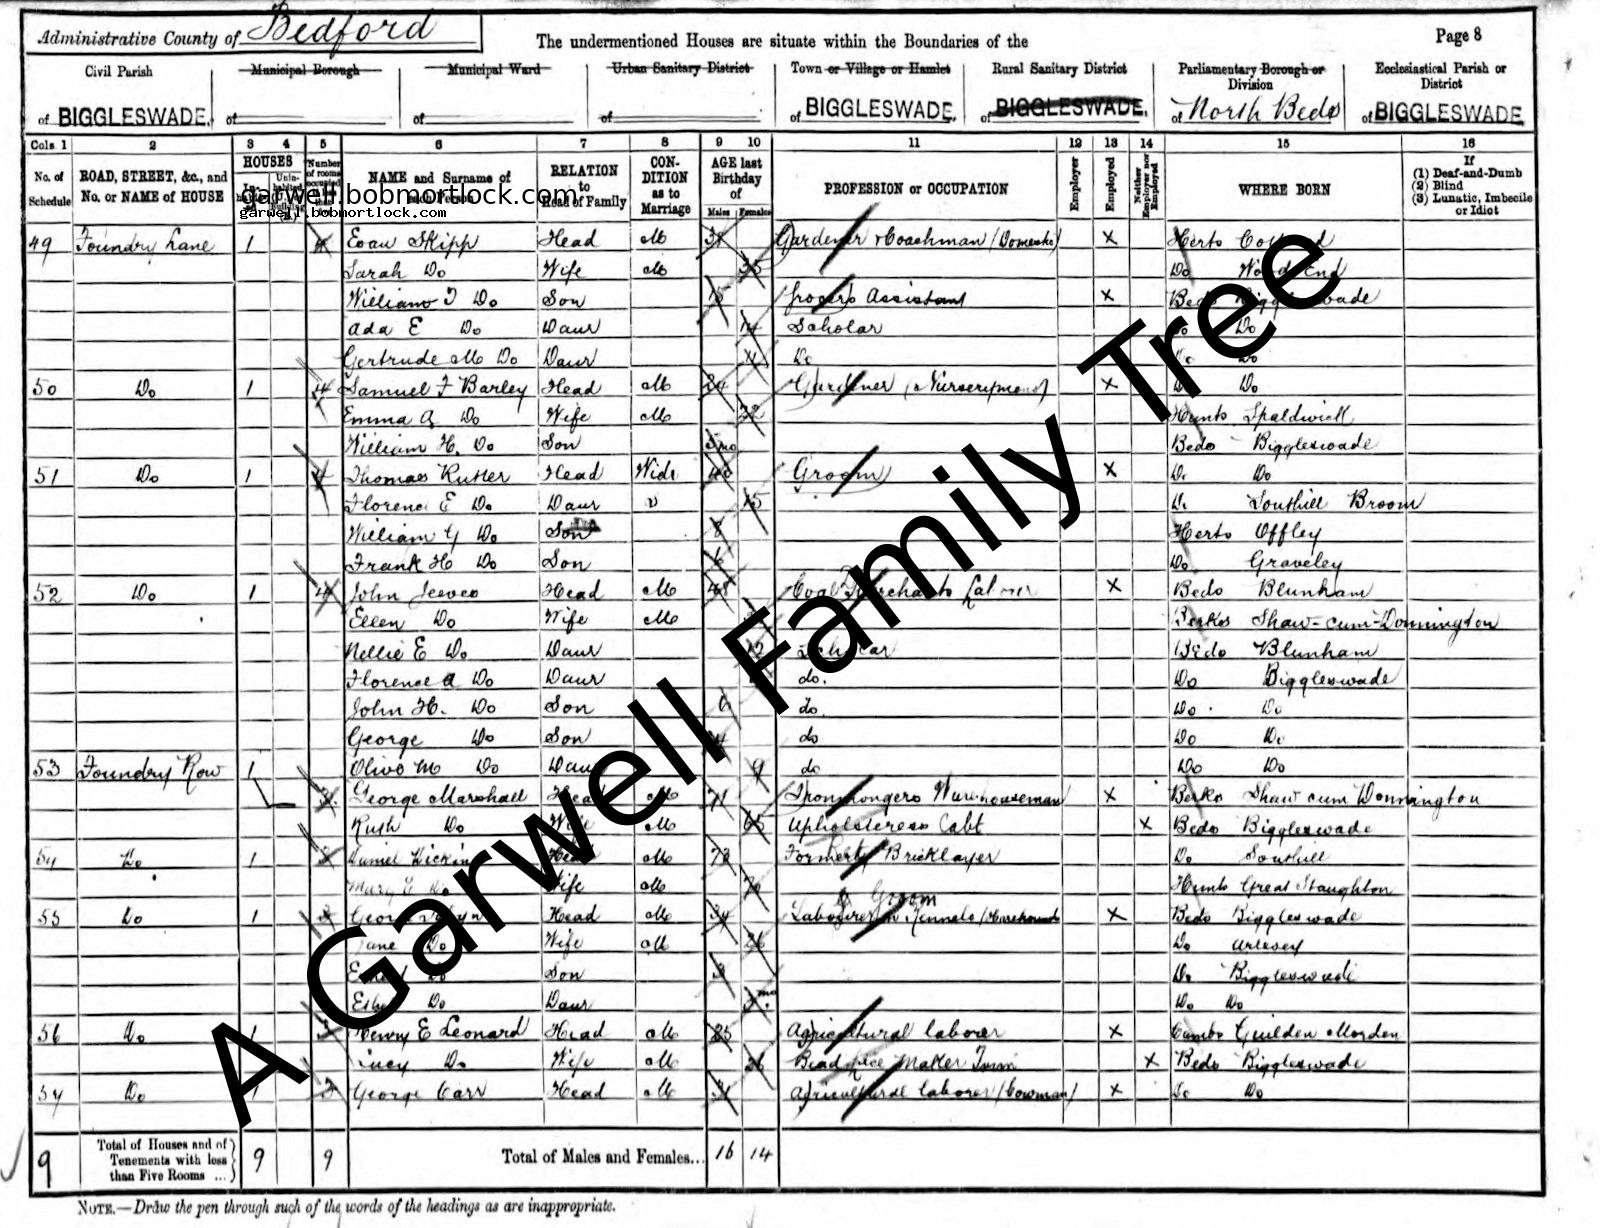 Administrative County of Bedford
The undermentioned Houses are situate within the Boundaries of the
Page 8
Civil Parish of BIGGLESWADE.
Municipal Borough of
Municipal Ward of
Urban Sanitary District of
Town or Village or Hamlet of BIGGLESWADE.
Rural Sanitary District of BIGGLESWADE.
Parliamentary Borough or Division of North Beds
Ecclesiastical Parish or District of BIGGLESWADE
Cols. 1 2 3 4 5 6 7 8 9 10 11 12 13 14 15 16
No. of Schedule
ROAD, STREET, &c., and No. or NAME of HOUSE
HOUSES
Number of rooms occupied
NAME and Surname of each Person
RELATION to Head of Family
CON-DITION as to Marriage
AGE last Birthday of
Males Females
PROFESSION or OCCUPATION
Employer
Employed
Neither Employer nor Employed
WHERE BORN
If
(1) Deaf-and-Dumb
(2) Blind
(3) Lunatic, Imbecile or Idiot
garwell.bobmortlock.com
garwell.bobmortlock.com
49 Foundry Lane 1 4 Evan Skipp Head M Gardener & Coachman (Domestic) X Herts
Sarah Do Wife M 35 Do Wood End
William J Do Son 15 Grocers Assistant X Beds Biggleswade
Ada E Do Daur 14 Scholar Do Do
Gertrude M Do Daur 11 Do Do Do
50 Do 1 4 Samuel F Barley Head M 24 Gardener (Nurseryman) X Do Do
Emma A Do Wife M 22 Hunts Spaldwick
William H. Do Son 5 mo Beds Biggleswade
51 Do 1 4 Thomas Rutter Head Widr 40 Groom X Do Do
Florence E Do Daur 15 Do Southill Broom
William G Do Son 8 Herts Offley
Frank H Do Son 6 Do Graveley
52 Do 1 4 John Jeeves Head M 48 Coal Merchants Labourer X Beds Blunham
Ellen Do Wife M Berks Shaw-cum-Donnington
Nellie E Do Daur 12 Scholar Beds Blunham
Florence A Do Daur do. Biggleswade
John H. Do Son 9 do. Do Do
George Do Son do Do Do
53 Foundry Row 1 Olive M Do Daur 9 do Do Do
3 George Marshall Head M 71 Ironmongers Warehouseman X Berks Shaw cum Donnington
Ruth Do Wife M 65 Upholsteress Cabt X Beds Biggleswade
54 Do 1 Daniel Dickins Head M 73 Formerly Bricklayer Do Southill
Mary E Do Wife M Hunts Great Staughton
55 Do 1 George Head M 34 Labourer in Kennels (Harehounds & Groom X Beds Biggleswade
Jane Do Wife M 26 Do Arlesey
Do Son 3 Do Biggleswade
Do Daur mo Do Do
56 Do 1 Henry E Leonard Head M 25 Agricultural laborer X Cambs Guilden Morden
Lucy Do Wife M 26 Maker X Beds Biggleswade
57 Do 1 George Carr Head M 31 Agricultural laborer (Cowman) X Do Do
9 Total of Houses and of Tenements with less than Five Rooms ... 9 9 Total of Males and Females... 16 14
NOTE.—Draw the pen through such of the words of the headings as are inappropriate.
A Garwell Family Tree